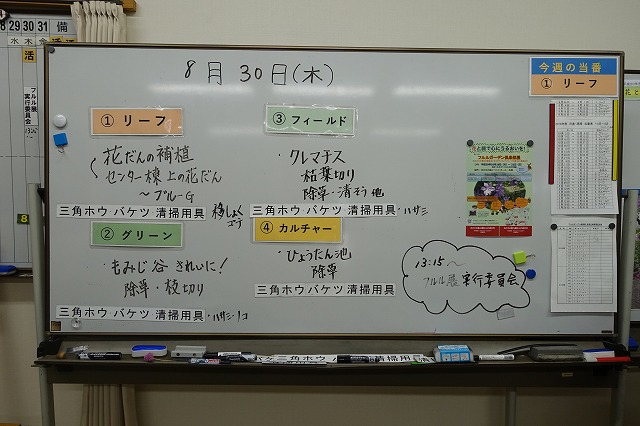 8 29 30 31 備
水 木 金
活
フルル展
実行委員会
13:15~
8
8月30日(木)
今週の当番
① リーフ
① リーフ
花だんの補植
センター棟上の花だん
~ブルーG
三角ホウ バケツ 清掃用具
移しょくゴテ
② グリーン
・もみじ谷 きれいに!
除草・枝切り
三角ホウ バケツ 清掃用具・ハサミ・ノコ
③ フィールド
・クレマチス
枯葉切り
除草・清そう他
三角ホウ バケツ 清掃用具・ハサミ
④ カルチャー
・ひょうたん池
除草
三角ホウ バケツ 清掃用具
13:15~
フルル展 実行委員会
フルルガーデン倶楽部展
三角ホウ
清掃用